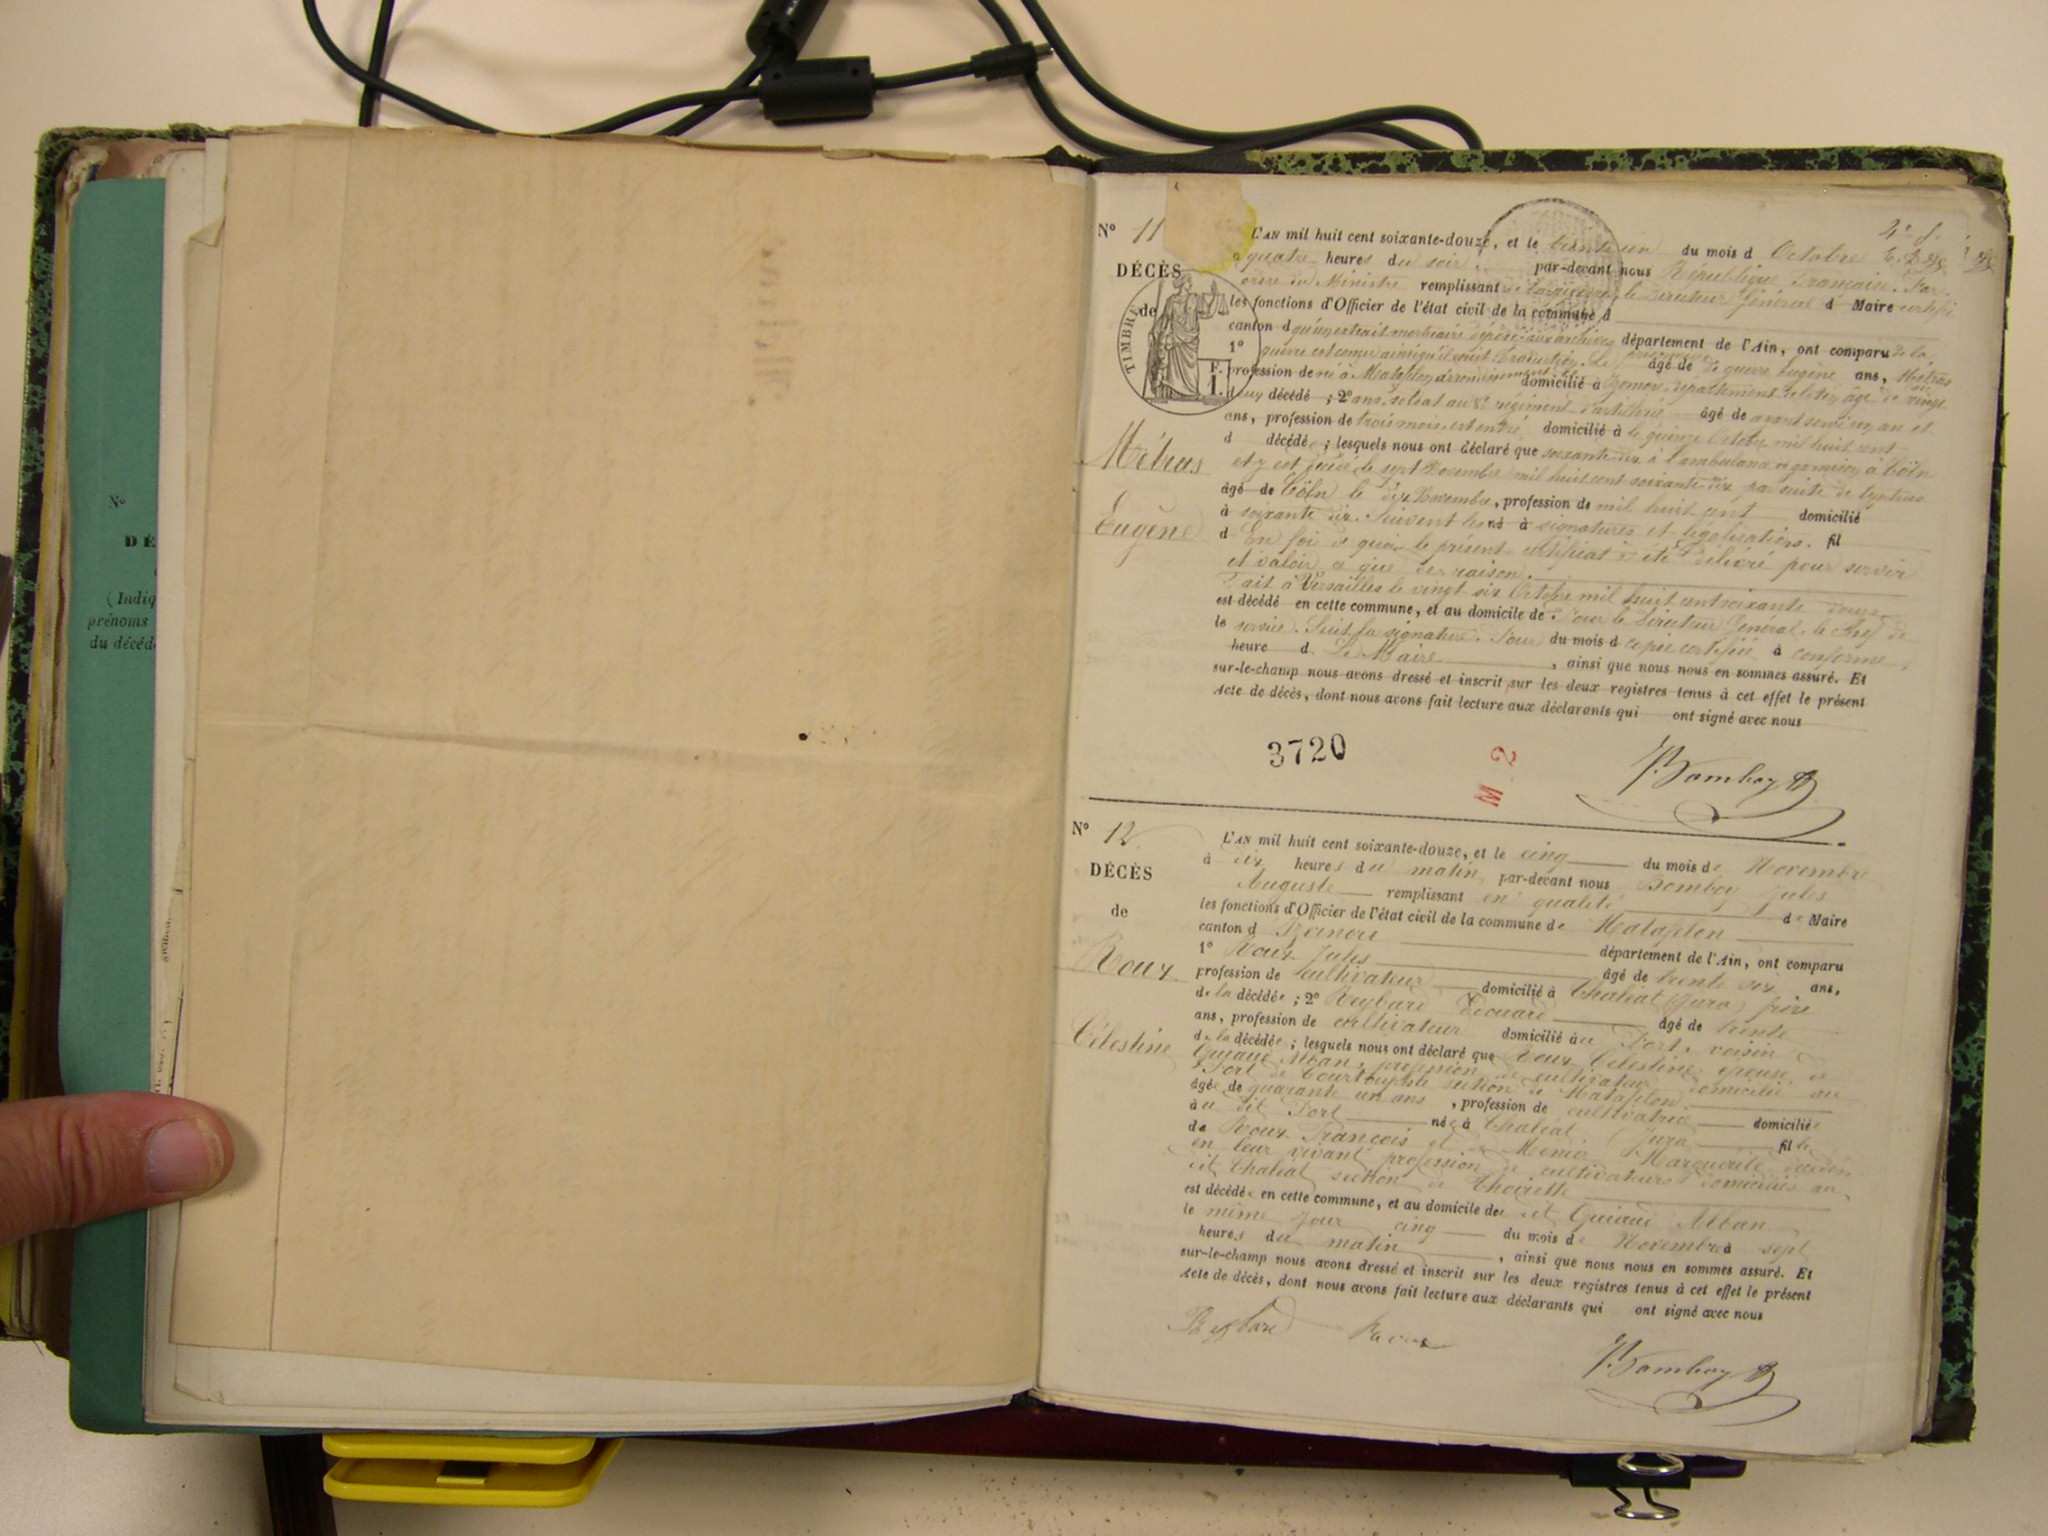 N°
DÉ
(Indiq
prénoms
du décéd
N° 11
L'AN mil huit cent soixante-douze, et le trente un du mois d Octobre
à quatre heures du soir, par-devant nous République Française. Par
ordre du Ministre remplissant le Directeur Général d Maire certifie
DÉCÈS
de
TIMBRE
F.
1.
les fonctions d'Officier de l'état civil de la commune d
canton d qu'un extrait mortuaire déposé aux archives département de l'Ain, ont comparu de la
1° guerre est conçu ainsi qu'il suit. Traduction. Le âgé de de guerre Eugène ans, Métras
profession de né à Matafelon arrondissement domicilié à département de l'Ain âgé de vingt
deux décédé ; 2° ans, soldat au 8e régiment d'artillerie âgé de ayant servi un an et
ans, profession de trois mois, est entré domicilié à le quinze Octobre mil huit cent
d décédé ; lesquels nous ont déclaré que soixante-dix à l'ambulance à Cöln
Métras
et y est décédé le sept Novembre mil huit cent soixante-dix par suite de
âgé de Cöln le dix Novembre, profession de mil huit cent domicilié
à soixante dix. Suivent les né à signatures et légalisations. fil
Eugène
d En foi de quoi le présent certificat a été délivré pour servir
et valoir ce que de raison.
Fait à Versailles le vingt six Octobre mil huit cent soixante douze
est décédé en cette commune, et au domicile de Pour le Directeur Général, le chef de
le service. Suit la signature. Pour du mois d copie certifiée à conforme.
heure d Le Maire , ainsi que nous nous en sommes assuré. Et
sur-le-champ nous avons dressé et inscrit sur les deux registres tenus à cet effet le présent
Acte de décès, dont nous avons fait lecture aux déclarants qui ont signé avec nous
3720
M 2
Bomboy
N° 12
L'AN mil huit cent soixante-douze, et le cinq du mois de Novembre
à dix heures du matin, par-devant nous Bomboy Jules
DÉCÈS
Auguste remplissant en qualité de Maire
les fonctions d'Officier de l'état civil de la commune de Matafelon
de
canton d
département de l'Ain, ont comparu
1° Roux Jules âgé de trente six ans,
Roux
profession de cultivateur domicilié à Chaléat (Jura) frère
de la décédée ; 2° Reybard Edouard âgé de trente
ans, profession de cultivateur domicilié au Port, voisin
Célestine
de la décédée ; lesquels nous ont déclaré que Roux Célestine, épouse de
Guiaud Alban, profession de cultivateur domicilié au
Port de section de Matafelon
âgée de quarante un ans , profession de cultivatrice domiciliée
au dit Port née à Chaléat (Jura) fille
de Roux François et de Marguerite décédés
en leur vivant profession de cultivateurs domiciliés au
dit Chaléat section de Thoirette
est décédée en cette commune, et au domicile de dit Guiaud Alban
le même jour cinq du mois de Novembre à sept
heures du matin , ainsi que nous nous en sommes assuré. Et
sur-le-champ nous avons dressé et inscrit sur les deux registres tenus à cet effet le présent
Acte de décès, dont nous avons fait lecture aux déclarants qui ont signé avec nous
Reybard Roux
Bomboy